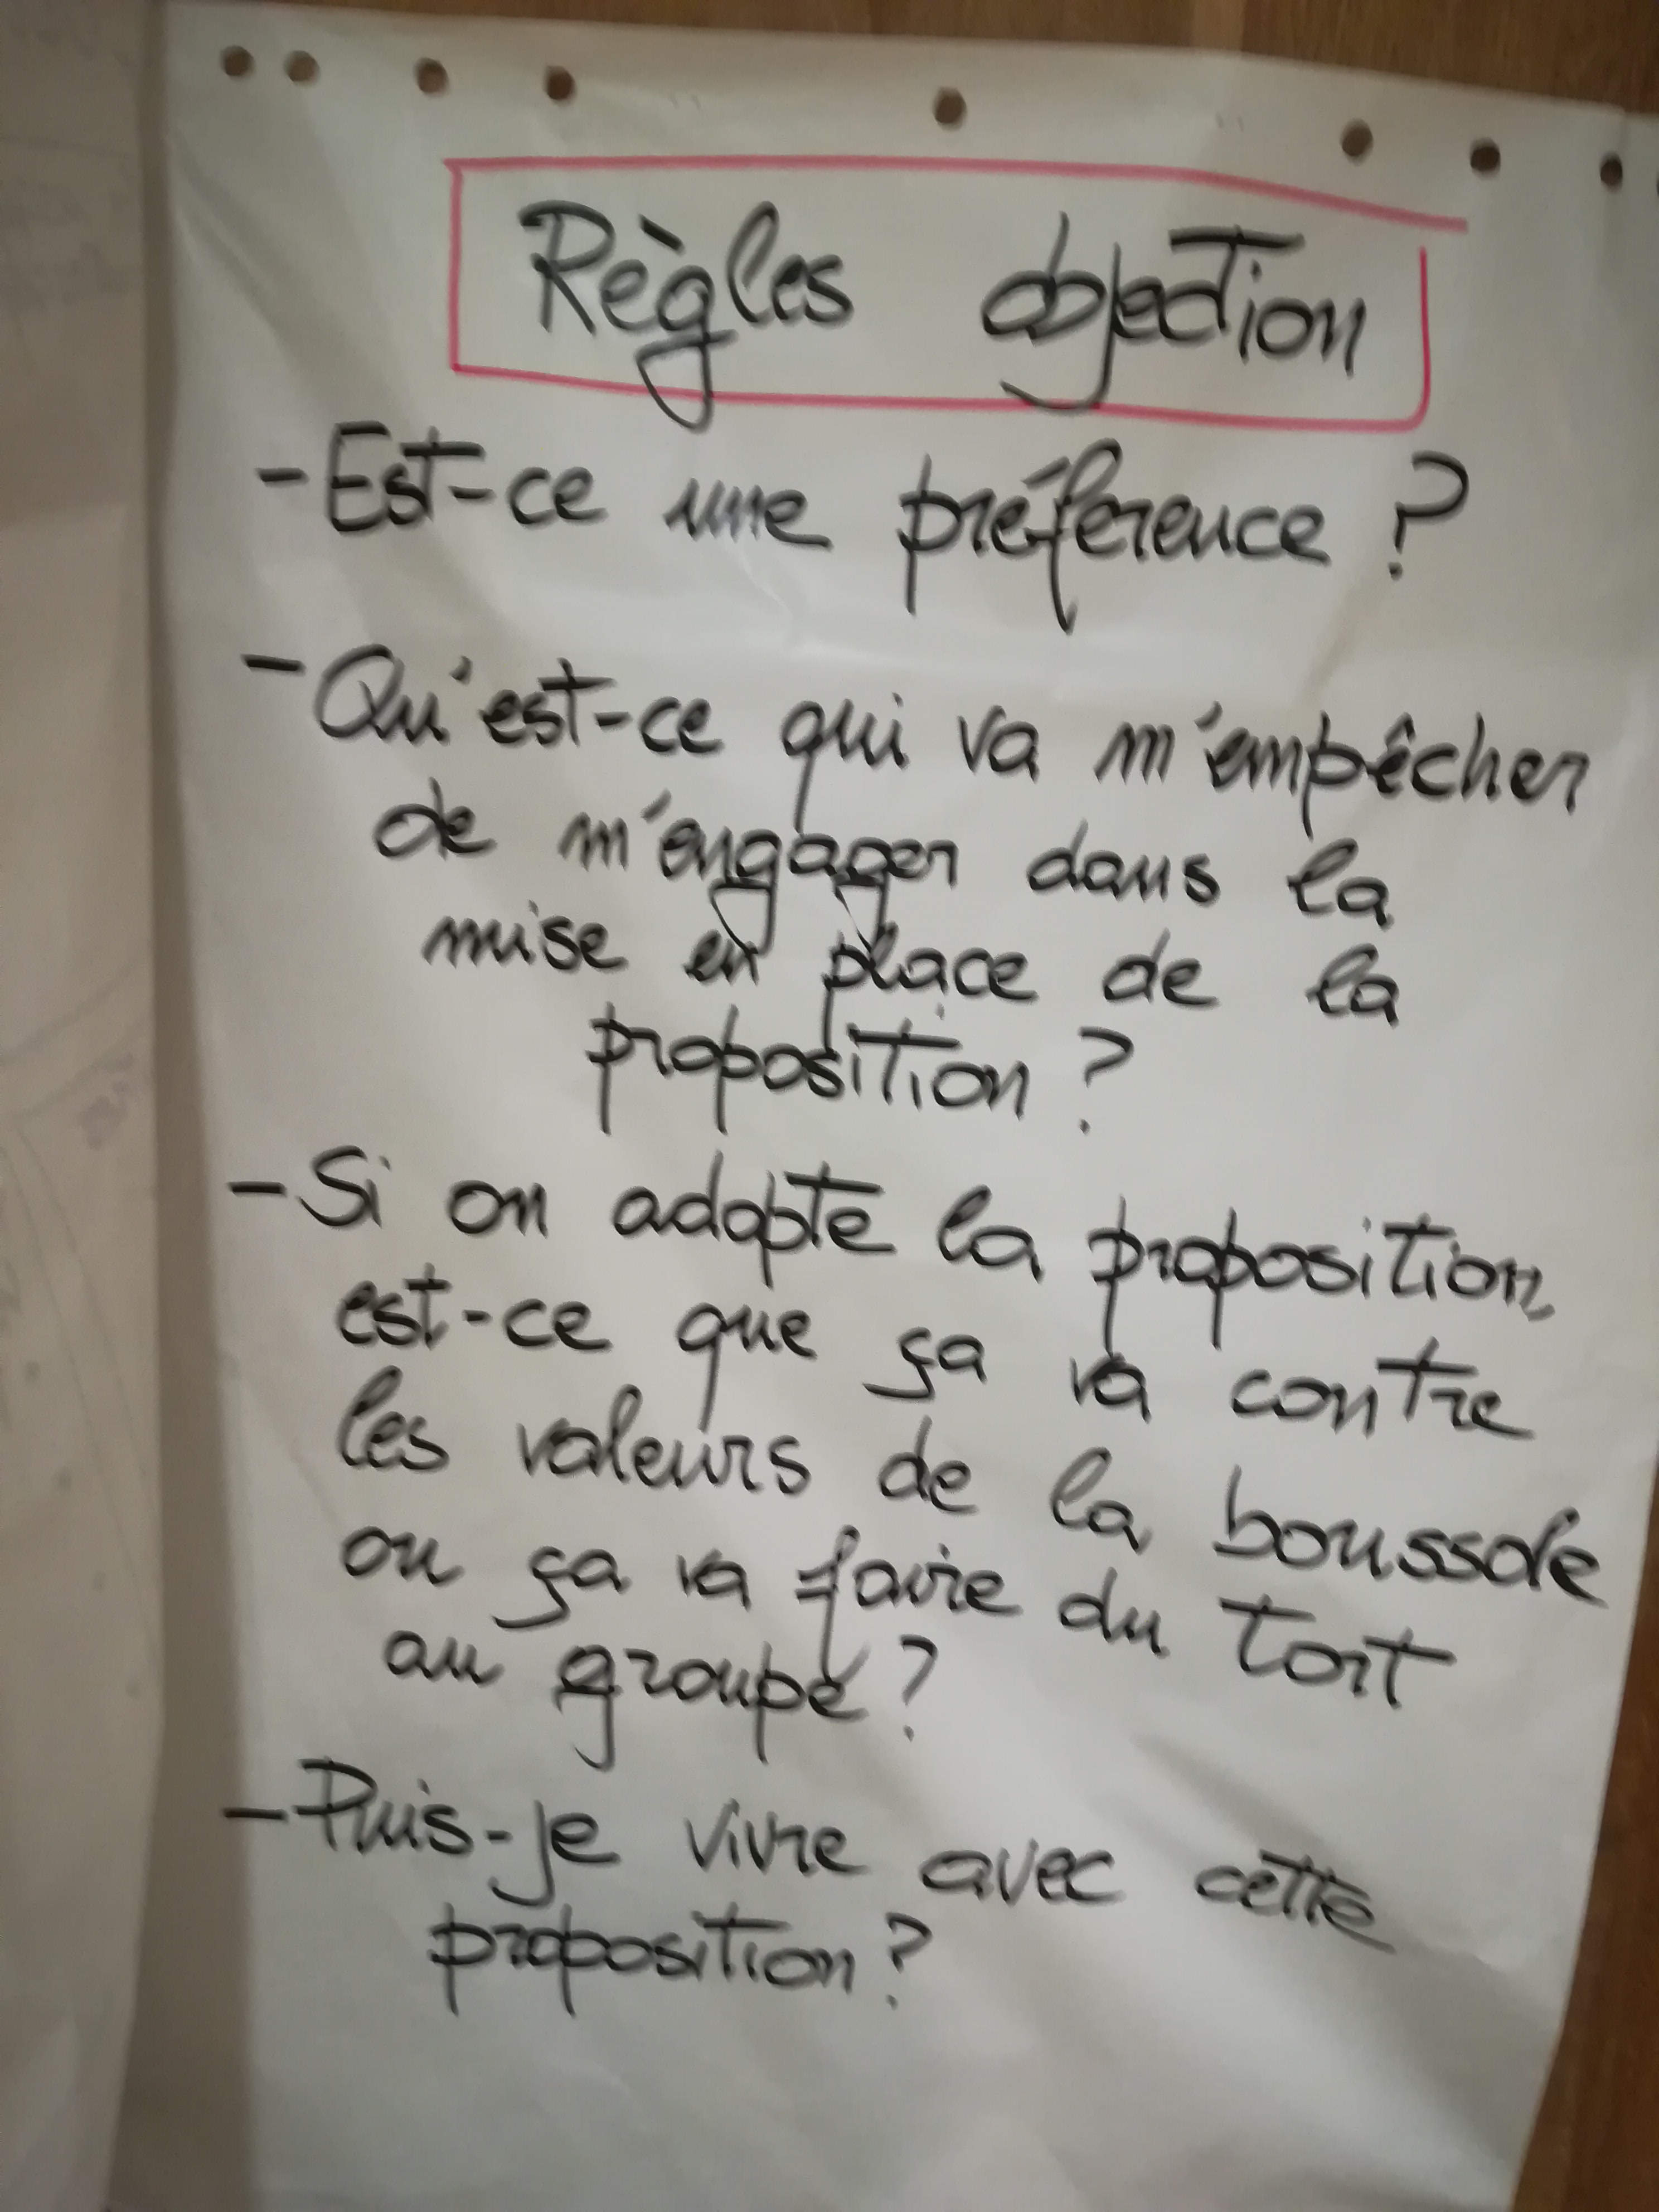 Règles objection
- Est-ce une préférence ?
- Qu'est-ce qui va m'empêcher
de m'engager dans la
mise en place de la
proposition ?
- Si on adopte la proposition,
est-ce que ça va contre
les valeurs de la boussole
ou ça va faire du tort
au groupe ?
- Puis-je vivre avec cette
proposition ?